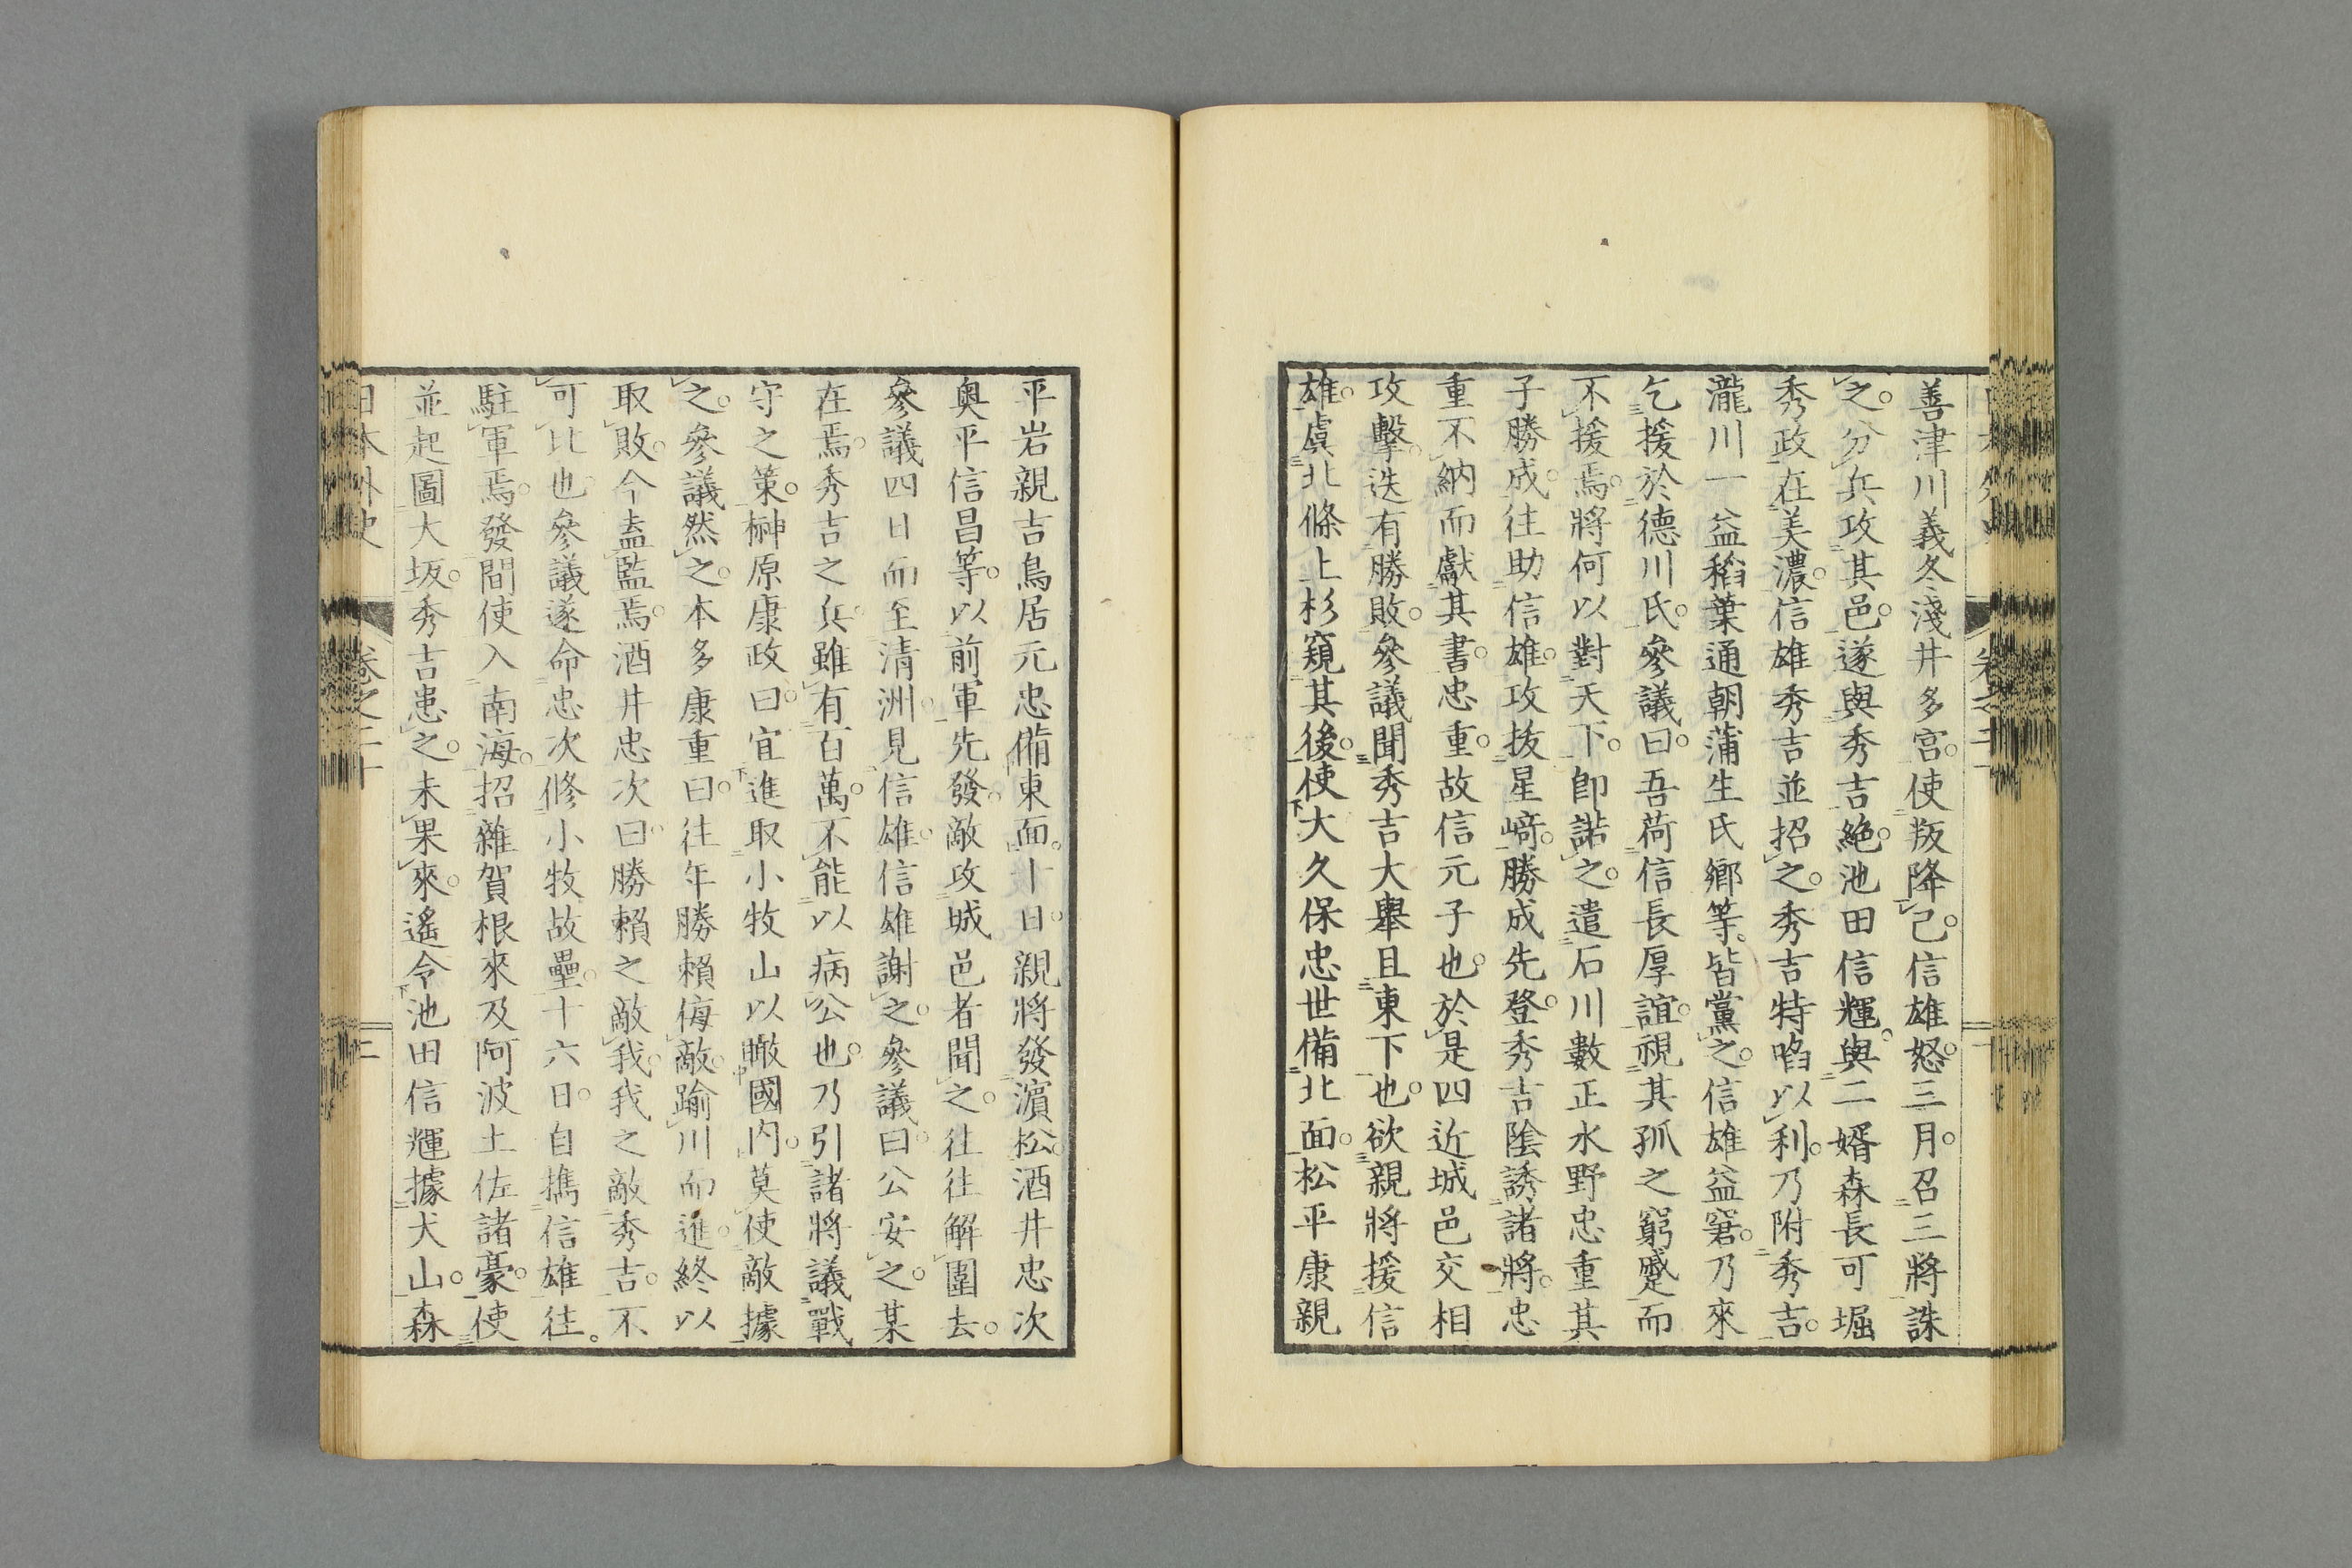 善津川義冬淺井多宮。使叛降己。信雄怒。三月。召三將誅
之。分兵攻其邑。遂與秀吉絶。池田信輝。與二婿森長可堀
秀政在美濃。信雄秀吉並招之。秀吉特啗以利。乃附秀吉。
瀧川一益稻葉通朝蒲生氏鄉等。皆黨之。信雄益窘。乃來
乞援於德川氏。參議曰。吾荷信長厚誼。視其孤之窮蹙而
不援焉。將何以對天下。卽諾之。遣石川數正水野忠重其
子勝成。往助信雄。攻拔星﨑。勝成先登。秀吉陰誘諸將。忠
重不納而獻其書。忠重。故信元子也。於是四近城邑交相
攻擊。迭有勝敗。參議聞秀吉大舉且東下也。欲親將援信
雄。虞北條上杉窺其後。使大久保忠世備北面。松平康親
平岩親吉鳥居元忠備東面。十日。親將發濱松。酒井忠次
奧平信昌等。以前軍先發。敵攻城邑者聞之。往往解圍去。
參議四日而至清洲。見信雄。信雄謝之。參議曰。公安之。某
在焉。秀吉之兵。雖有百萬。不能以病公也。乃引諸將議戰
守之策。榊原康政曰。宜進取小牧山以瞰國內。莫使敵據
之。參議然之。本多康重曰。往年勝賴侮敵。踰川而進。終以
取敗。今盍監焉。酒井忠次曰。勝賴之敵我。我之敵秀吉。不
可比也。參議遂命忠次修小牧故壘。十六日。自擕信雄往。
駐軍焉。發間使入南海。招雜賀根來及阿波土佐諸豪。使
並起圖大坂。秀吉患之。未果來。遙令池田信輝據犬山。森
日本外史 卷之二十 二